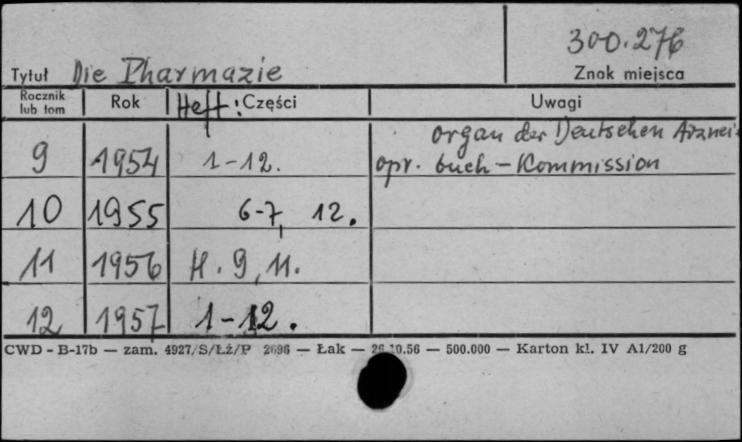 300.276
Tytuł Die Pharmazie Znak miejsca
Rocznik lub tom Rok Heft: Części Uwagi
organ der Deutschen Arznei-
9 1954 1-12. opr. buch-Kommission
10 1955 6-7, 12.
11 1956 H. 9, 11.
12 1957 1-12.
CWD - B-17b — zam. 4927/S/ŁŻ/P 2696 — Łak — 26.10.56 — 500.000 — Karton kl. IV A1/200 g